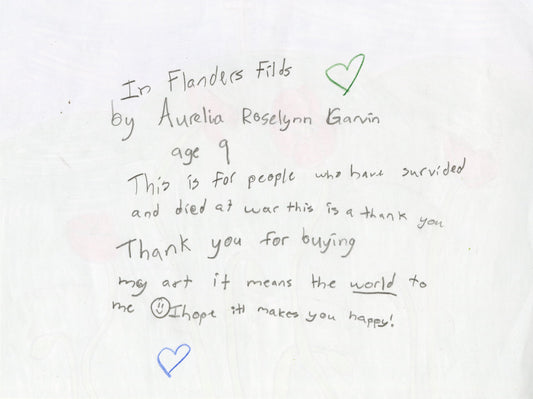 In Flanders Filds
by Aurelia Roselynn Garvin
age 9
This is for people who have survided
and died at war this is a thank you
Thank you for buying
my art it means the world to
me I hope itll makes you happy!